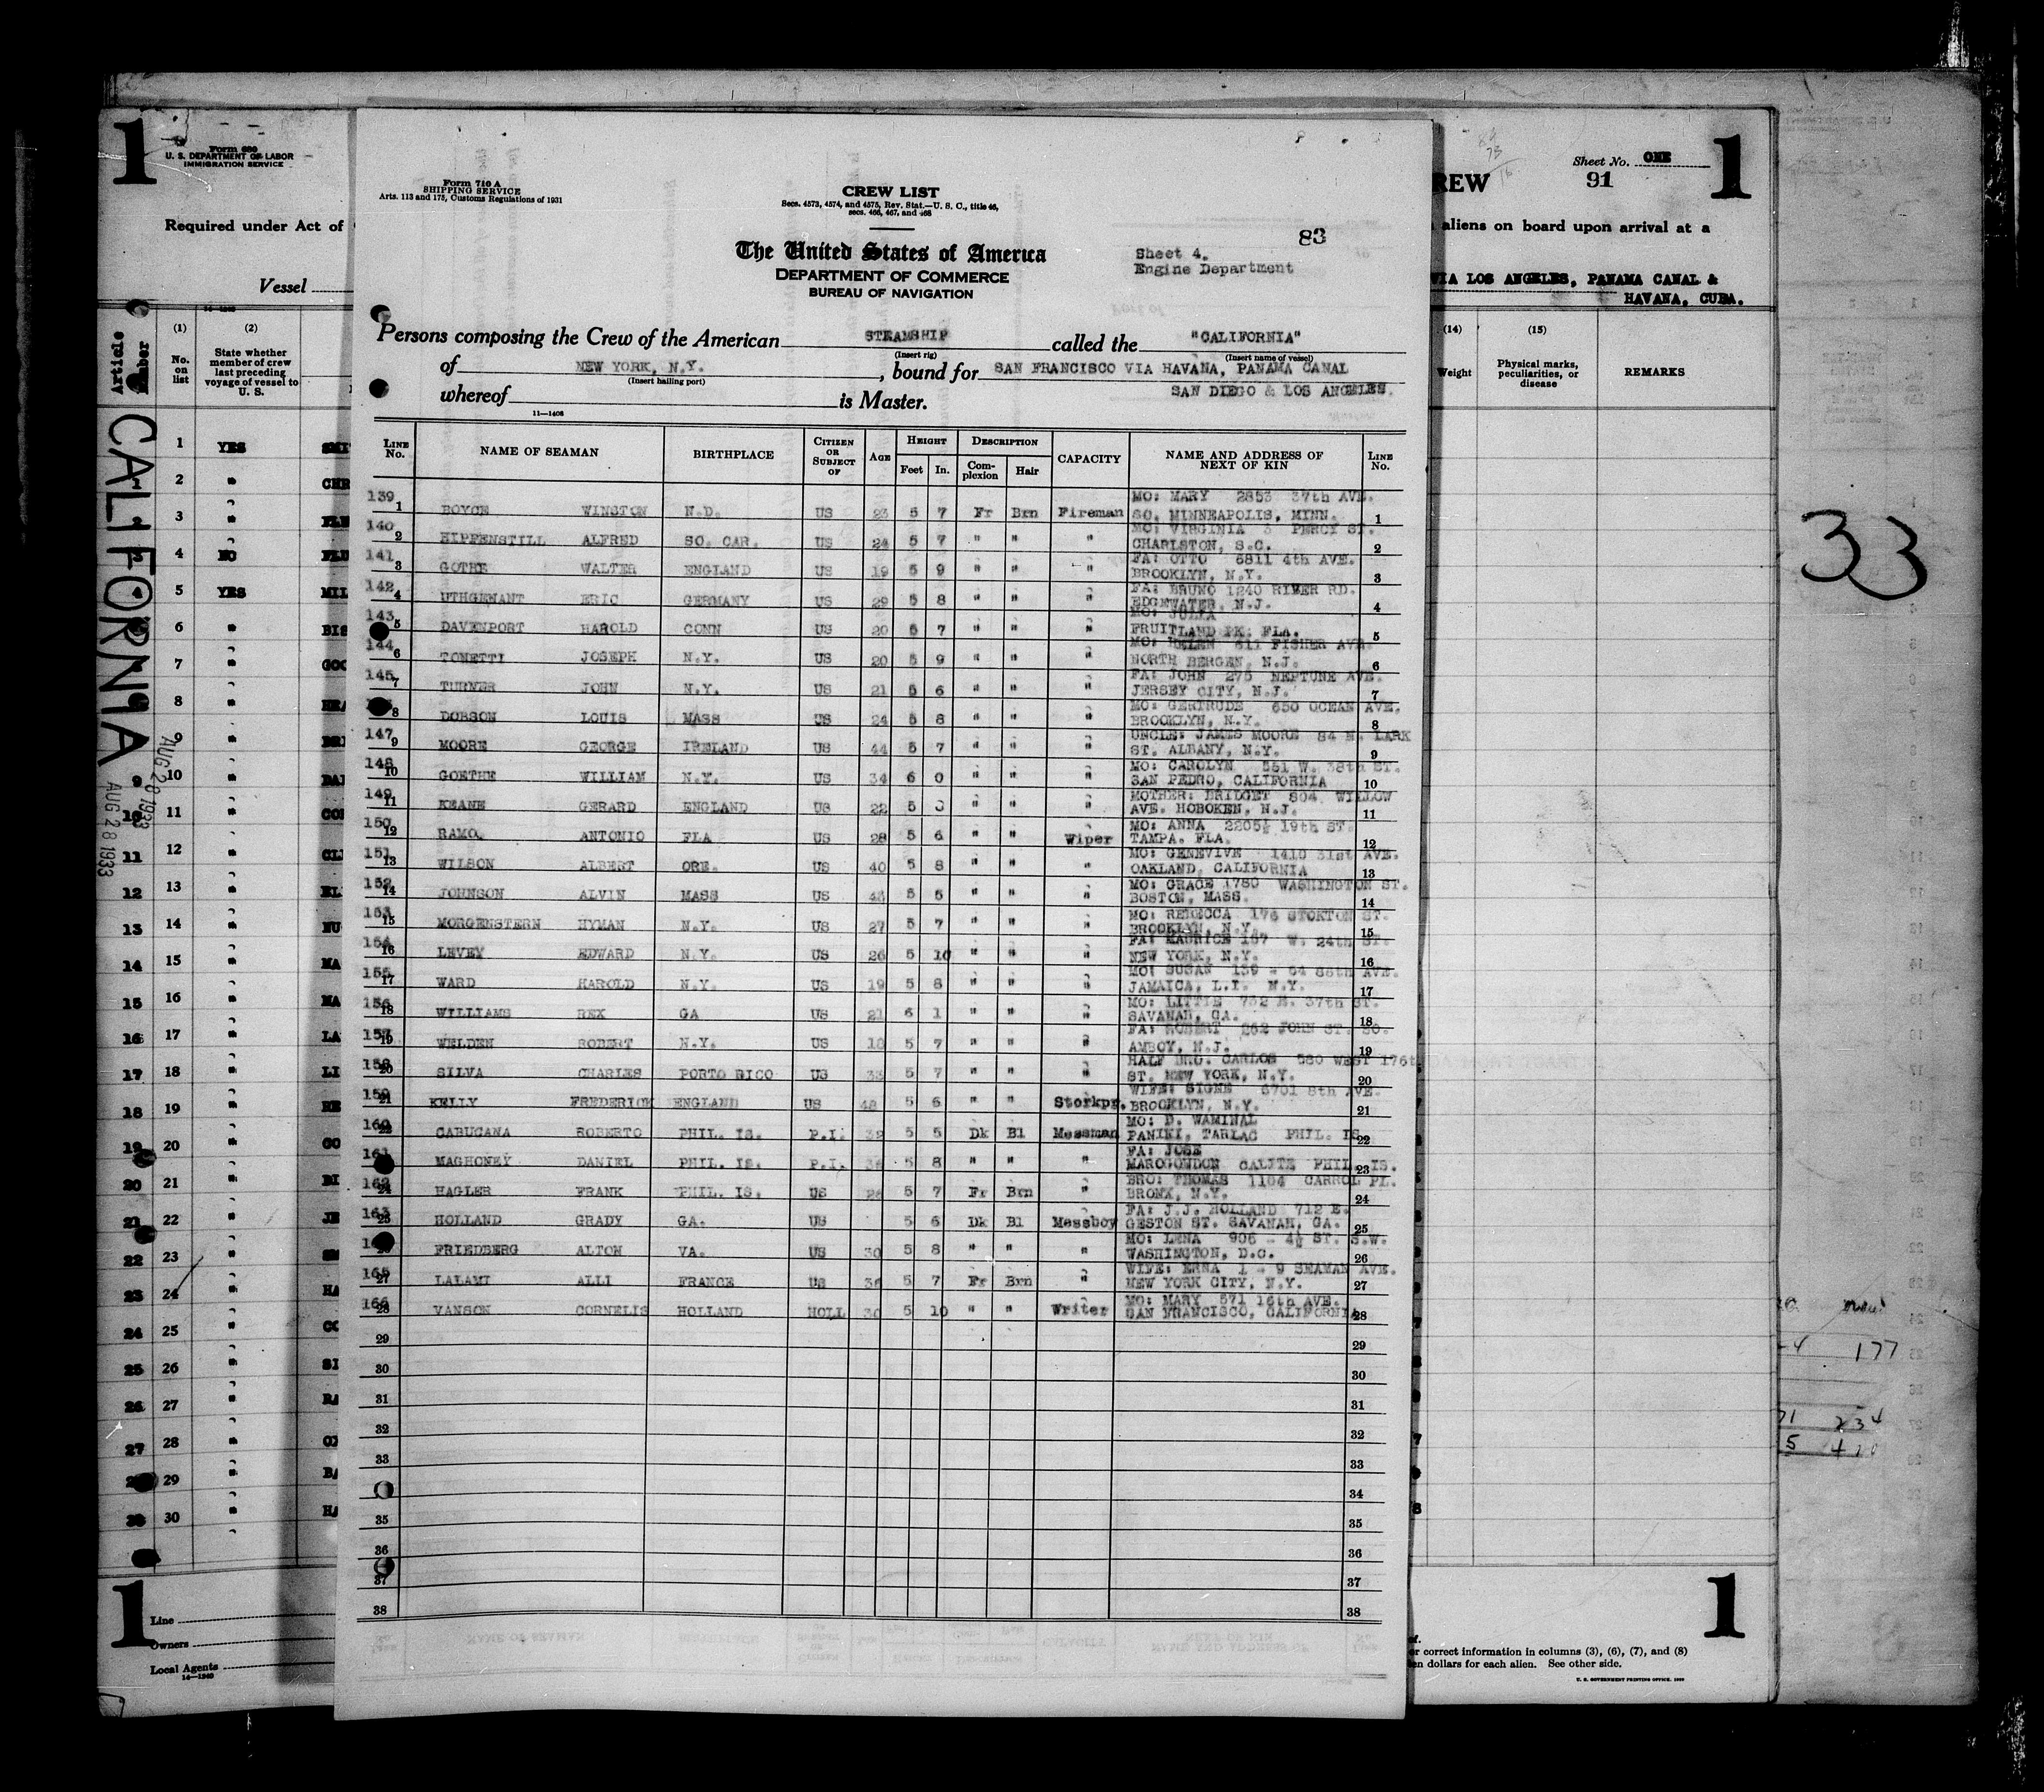 1
Form 680
U. S. DEPARTMENT OF LABOR
IMMIGRATION SERVICE
Required under Act of
Vessel
Article
Number
CALIFORNIA
AUG 28 1933
AUG 28 1933
(1) (2)
No. on list
State whether member of crew last preceding voyage of vessel to U. S.
1 YES
2 "
3 "
4 NO
5 YES
6 "
7 "
8 "
9 "
10 "
11 "
12 "
13 "
14 "
15 "
16 "
17 "
18 "
19 "
20 "
21 "
22 "
23 "
24 "
25 "
26 "
27 "
28 "
29 "
30 "
1
Line
Owners
Local Agents
14—1240
Form 710 A
SHIPPING SERVICE
Arts. 113 and 175, Customs Regulations of 1931
CREW LIST
Secs. 4573, 4574, and 4575, Rev. Stat.—U. S. C., title 46,
secs. 466, 467, and 468
83
The United States of America
DEPARTMENT OF COMMERCE
BUREAU OF NAVIGATION
Sheet 4.
Engine Department
Persons composing the Crew of the American STEAMSHIP called the "CALIFORNIA"
(Insert rig) (Insert name of vessel)
of NEW YORK, N.Y., bound for SAN FRANCISCO VIA HAVANA, PANAMA CANAL
(Insert hailing port)
SAN DIEGO & LOS ANGELES.
whereof is Master.
11—1408
LINE No. NAME OF SEAMAN BIRTHPLACE CITIZEN OR SUBJECT OF AGE HEIGHT DESCRIPTION CAPACITY NAME AND ADDRESS OF NEXT OF KIN LINE No.
Feet In. Complexion Hair
139 MO: MARY 2853 37th AVE.
1 BOYCE WINSTON N.D. US 23 5 7 Fr Brn Fireman SO. MINNEAPOLIS, MINN. 1
140 MO: VIRGINIA 3 PERCY ST.
2 HIPFENSTILL ALFRED SO. CAR. US 24 5 7 " " " CHARLSTON, S.C. 2
141 FA: OTTO 6811 4th AVE.
3 GOTHE WALTER ENGLAND US 19 5 9 " " " BROOKLYN, N.Y. 3
142 FA: BRUNO 1240 RIVER RD.
4 UTHGENANT ERIC GERMANY US 29 5 8 " " " EDGEWATER, N.J. 4
143 MO: JULIA
5 DAVENPORT HAROLD CONN US 20 5 7 " " " FRUITLAND PK. FLA. 5
144 MO: HELEN 611 FISHER AVE.
6 TONETTI JOSEPH N.Y. US 20 5 9 " " " NORTH BERGEN, N.J. 6
145 FA: JOHN 275 NEPTUNE AVE.
7 TURNER JOHN N.Y. US 21 5 6 " " " JERSEY CITY, N.J. 7
MO: GERTRUDE 650 OCEAN AVE.
8 DOBSON LOUIS MASS US 24 5 8 " " " BROOKLYN, N.Y. 8
147 UNCLE: JAMES MOORE 84 N. LARK
9 MOORE GEORGE IRELAND US 44 5 7 " " " ST. ALBANY, N.Y. 9
148 MO: CAROLYN 561 W. 38th ST.
10 GOETHE WILLIAM N.Y. US 34 6 0 " " " SAN PEDRO, CALIFORNIA 10
149 MOTHER: BRIDGET 804 WILLOW
11 KEANE GERARD ENGLAND US 22 5 " " " AVE. HOBOKEN, N.J. 11
150 MO: ANNA 2205½ 19th ST.
12 RAMO ANTONIO FLA US 28 5 6 " " Wiper TAMPA. FLA. 12
151 MO: GENEVIVE 1410 31st AVE.
13 WILSON ALBERT ORE. US 40 5 8 " " " OAKLAND, CALIFORNIA 13
152 MO: GRACE 1780 WASHINGTON ST.
14 JOHNSON ALVIN MASS US 43 5 5 " " " BOSTON, MASS. 14
153 MO: REBECCA 176 STOKTON ST.
15 MORGENSTERN HYMAN N.Y. US 27 5 7 " " " BROOKLYN, N.Y. 15
154 FA: MAURICE 167 W. 24th ST.
16 LEVEY EDWARD N.Y. US 26 5 10 " " " NEW YORK, N.Y. 16
155 MO: SUSAN 139 - 64 86th AVE.
17 WARD HAROLD N.Y. US 19 5 8 " " " JAMAICA, L.I. N.Y. 17
156 MO: LITTIE 732 E. 37th ST.
18 WILLIAMS REX GA US 21 6 1 " " " SAVANAH, GA. 18
157 FA: ROBERT 262 JOHN ST. SO.
19 WELDEN ROBERT N.Y. US 18 5 7 " " " AMBOY, N.J. 19
158 HALF BRO. CARLOS 580 WEST 176th
20 SILVA CHARLES PORTO RICO US 33 5 7 " " " ST. NEW YORK, N.Y. 20
159 WIFE: SIGNE 6701 8th AVE.
21 KELLY FREDERICK ENGLAND US 48 5 6 " " Storkpr. BROOKLYN, N.Y. 21
160 MO: D. WAMINAL
22 CABUCANA ROBERTO PHIL. IS. P.I. 32 5 5 Dk Bl Messman PANIKI, TARLAC PHIL. IS. 22
161 FA: JOSE
MAGHONEY DANIEL PHIL. IS. P.I. 36 5 8 " " " MAROGONDON CALITE PHIL. IS. 23
162 BRO: THOMAS 1104 CARROL PL.
24 HAGLER FRANK PHIL. IS. US 26 5 7 Fr Brn " BRONX, N.Y. 24
163 FA: J.J. HOLLAND 712 E.
25 HOLLAND GRADY GA. US 5 6 Dk Bl Messboy GESTON ST. SAVANAH, GA. 25
MO: LENA 906 - 4½ ST. S.W.
FRIEDBERG ALTON VA. US 30 5 8 " " " WASHINGTON, D.C. 26
165 WIFE: ERNA 1 - 9 SEAMAN AVE.
27 LALAMI ALLI FRANCE US 36 5 7 Fr Brn " NEW YORK CITY, N.Y. 27
166 MO: MARY 571 16th AVE.
28 VANSON CORNELIS HOLLAND HOLL 30 5 10 " " Writer SAN FRANCISCO, CALIFORNIA 28
29 29
30 30
31 31
32 32
33 33
34
35 35
36 36
37 37
38 38
REW
Sheet No. ONE
91
1
aliens on board upon arrival at a
VIA LOS ANGELES, PANAMA CANAL &
HAVANA, CUBA.
(14) (15)
Weight Physical marks, peculiarities, or disease REMARKS
33
177
234
1
or correct information in columns (3), (6), (7), and (8)
en dollars for each alien. See other side.
U. S. GOVERNMENT PRINTING OFFICE